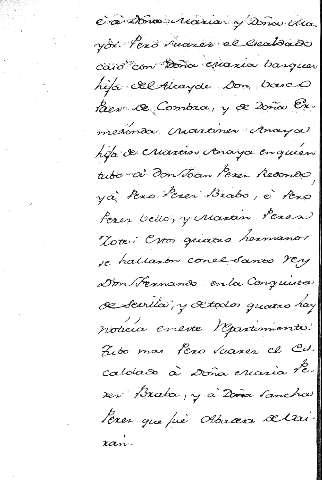 è à Doña Maria, y Doña Ma-
yor. Pero Suarez el Escaldado
casó con Doña Maria Vasquez
hija del Alcayde Don Vasco
Paez de Coimbra, y de Doña Er-
mesenda Martinez Anaya
hija de Martin Anaya en quien
tubo à Don Juan Perez Redondo,
y à Pero Perez Brabo, è Pero
Perez Vello, y Martin Perez
Zote: Estos quatro hermanos
se hallaron con el Santo Rey
Don Fernando en la Conquista
de Sevilla, y de todos quatro hay
noticia en este Repartimiento.
Tubo mas Pero Suarez el Es-
caldado à Doña Maria Pe-
rez Braba, y à Doña Sancha
Perez que fué Abadesa de